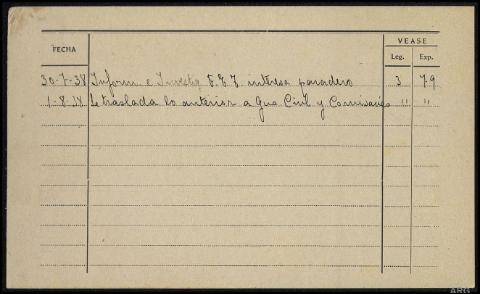 VEASE
FECHA
Leg. Exp.
30-7-38 Inform e Investig F.E.T. interesa paradero 3 79
1-8-IX Se traslada lo anterior a Gua Civil y Comisarías " "
ARG